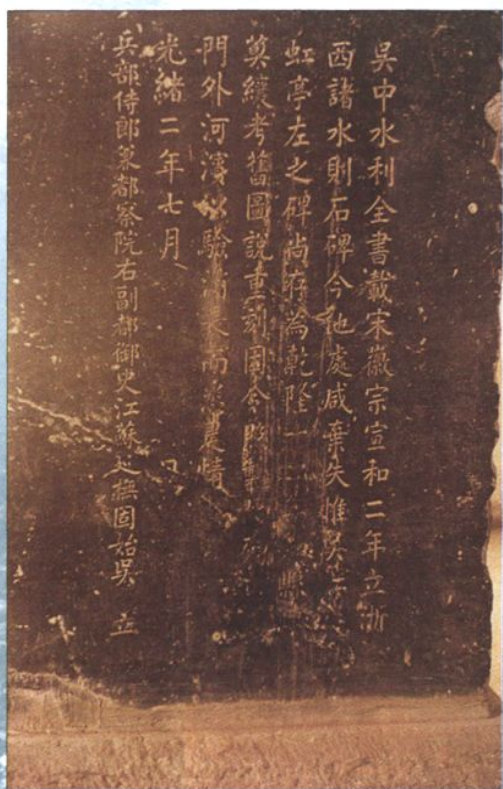 吳中水利全書載宋徽宗宣和二年立浙
西諸水則石碑今他處咸棄失惟吳
虹亭左之碑尚存為乾隆十二
考舊圖說重刻
門外河濱以驗消長而農情
光緒二年七月
兵部侍郎兼都察院右副都御史江蘇巡撫固始吳 立